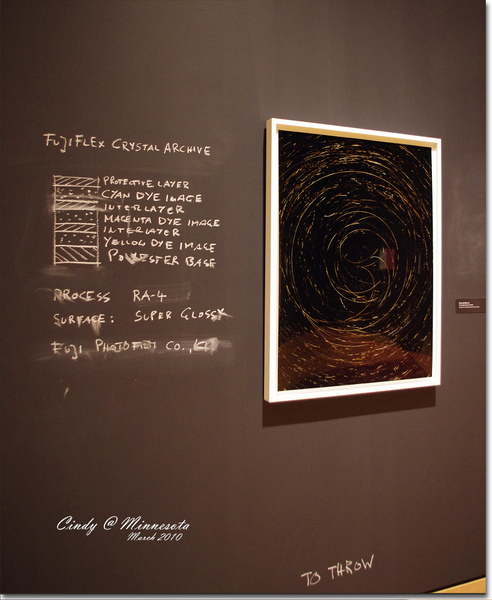 FUJIFLEX CRYSTAL ARCHIVE
PROTECTIVE LAYER
CYAN DYE IMAGE
INTERLAYER
MAGENTA DYE IMAGE
INTERLAYER
YELLOW DYE IMAGE
POLYESTER BASE
PROCESS RA-4
SURFACE: SUPER GLOSSY
FUJI PHOTO CO.,
TO THROW
Cindy @ Minnesota
March 2010